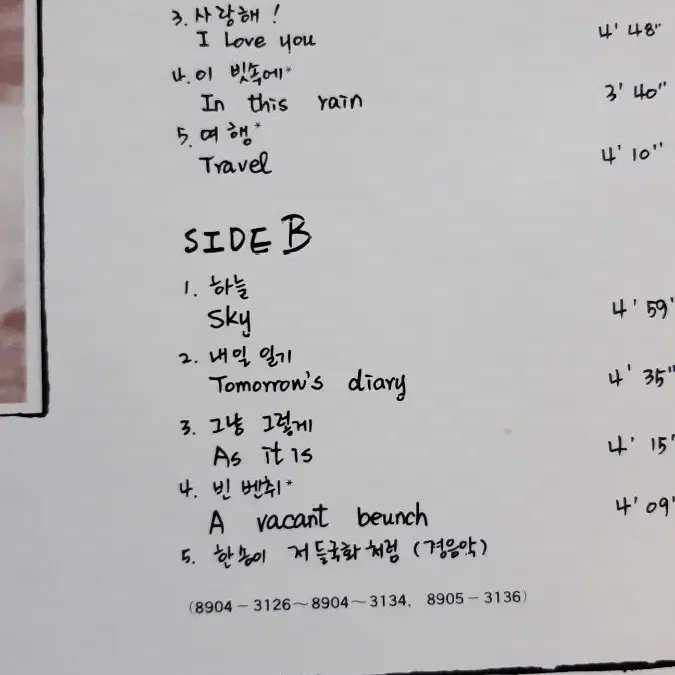 3. 사랑해 !
I love you 4' 48"
4. 이 빗속에*
In this rain 3' 40"
5. 여행*
Travel 4' 10"
SIDE B
1. 하늘
Sky 4' 59"
2. 내일 일기
Tomorrow's diary 4' 35"
3. 그냥 그렇게
As it is 4' 15"
4. 빈 벤취*
A vacant beunch 4' 09"
5. 한송이 저 들국화처럼 (경음악)
(8904-3126~8904~3134, 8905-3136)